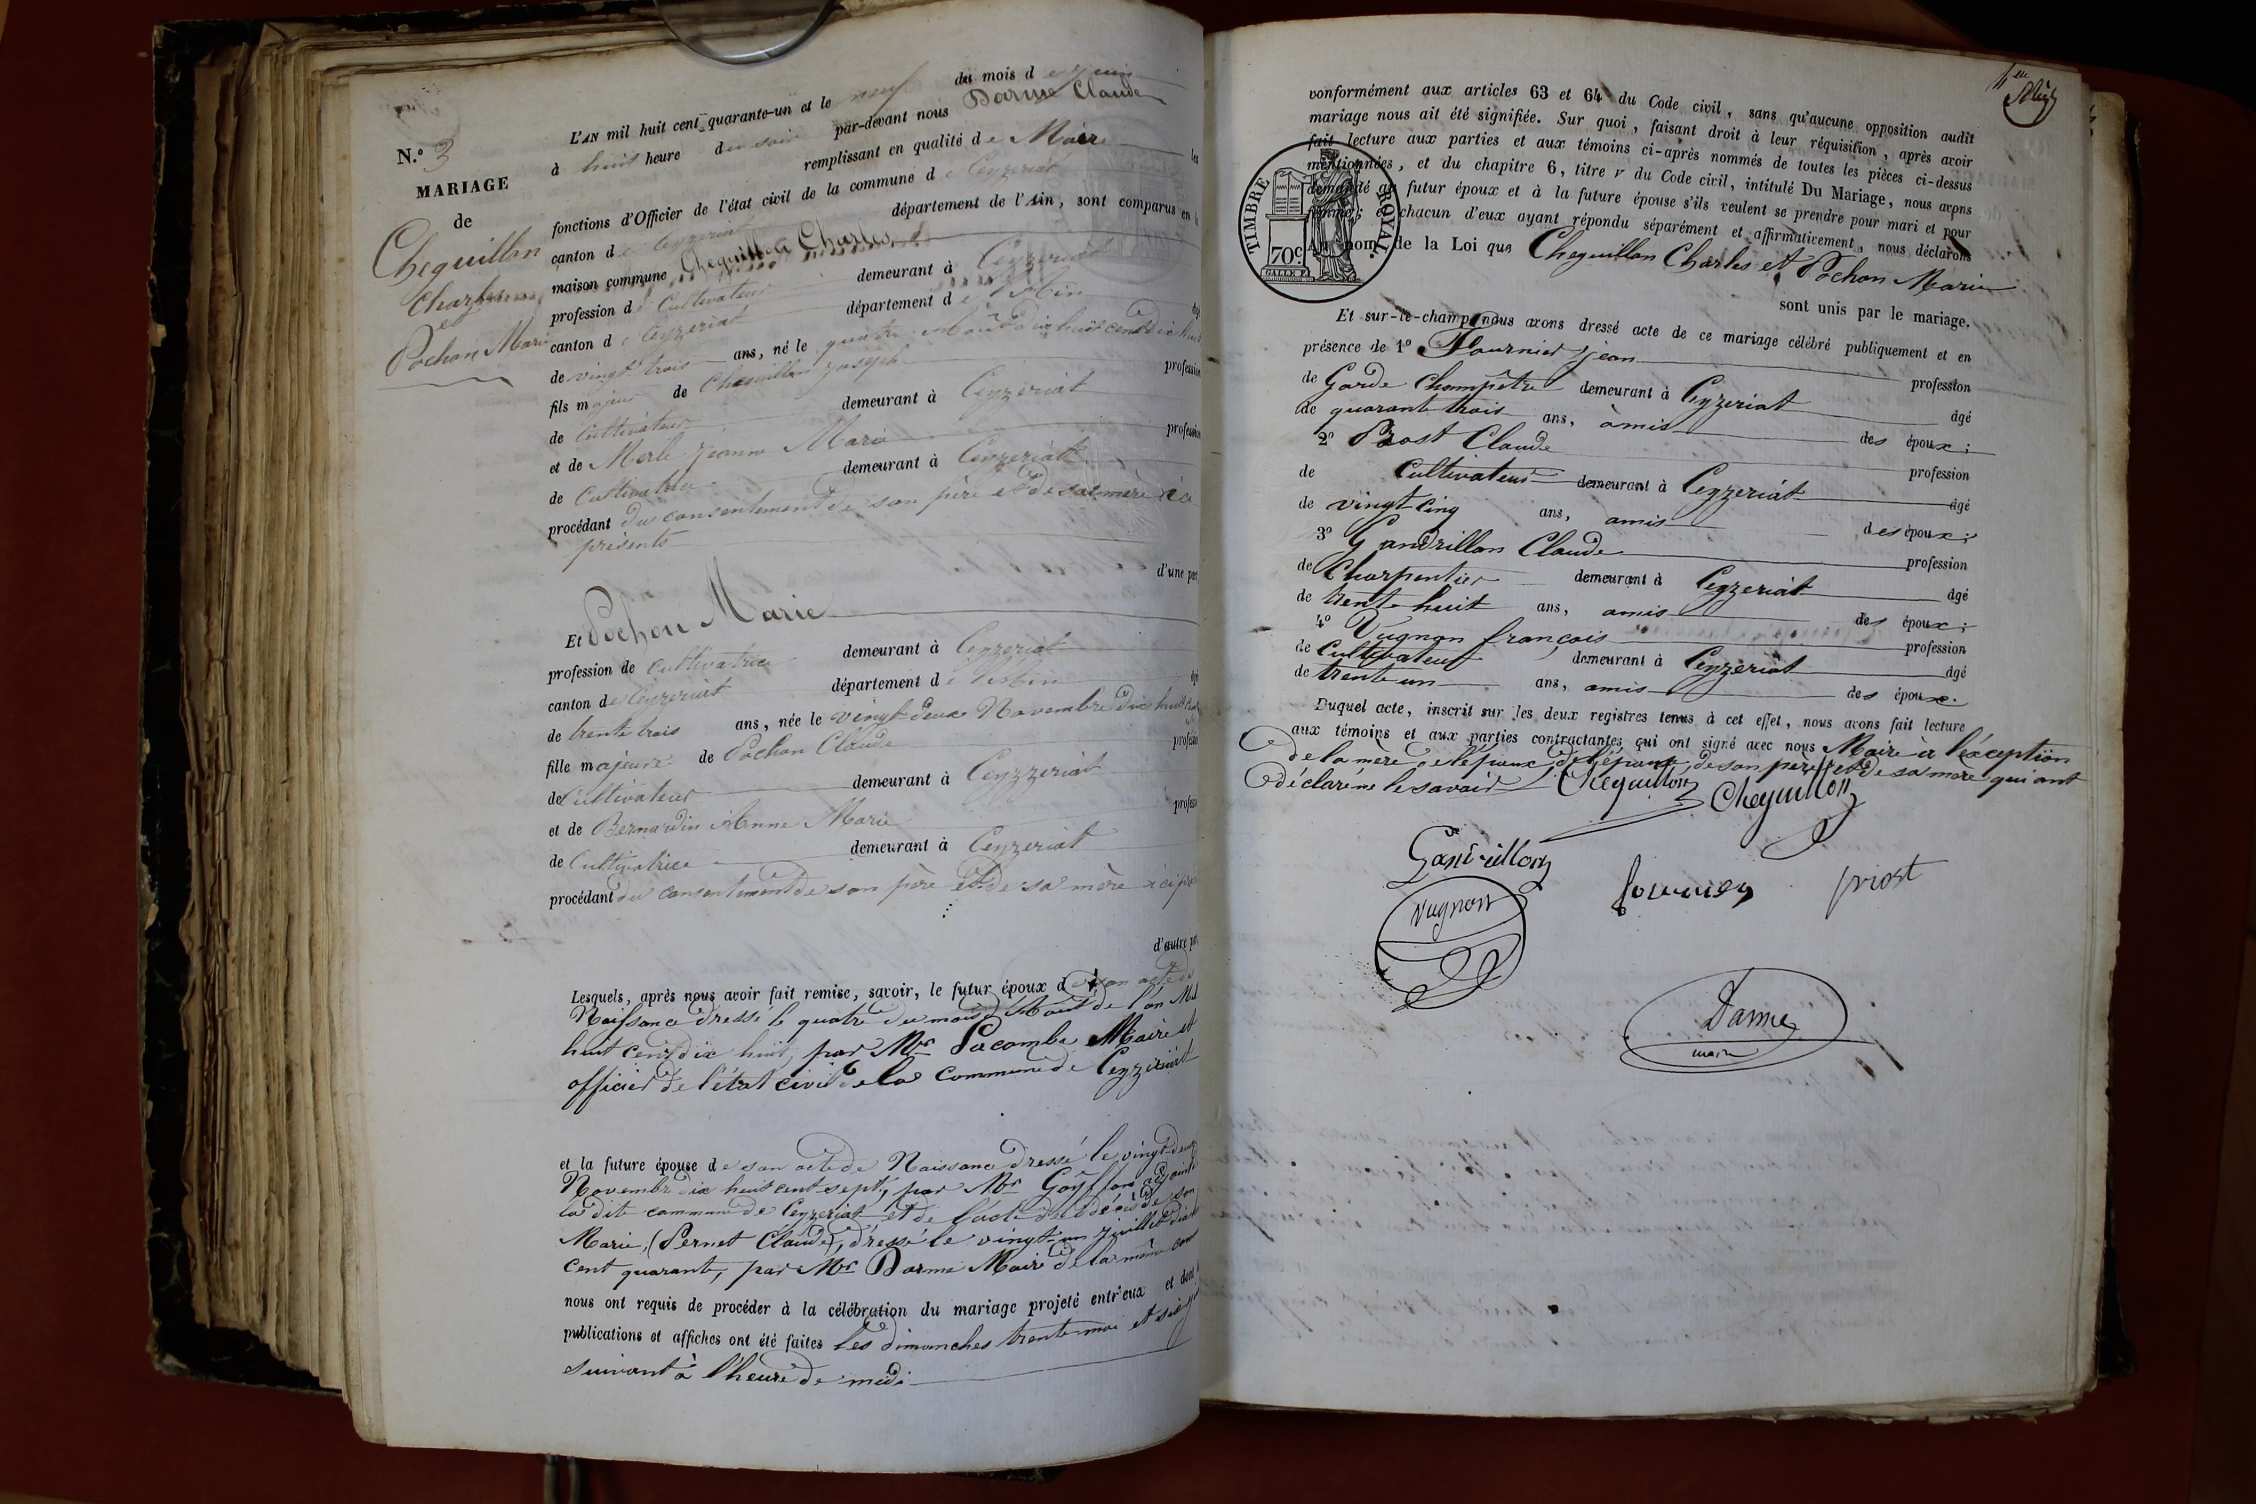 N.° 3
MARIAGE
de
Cheguillon
Charles
et
Pochon Marie
L'AN mil huit cent quarante-un et le neuf du mois de juin
à huit heure du soir par-devant nous Darme Claude
remplissant en qualité de Maire les
fonctions d'Officier de l'état civil de la commune de Ceyzeriat
canton de Ceyzeriat département de l'Ain, sont comparus en la
maison commune Cheguillon Charles
profession de Cultivateur demeurant à Ceyzeriat
canton de Ceyzeriat département de l'Ain âgé
de vingt trois ans, né le quatre Août dix huit cent dix huit
fils majeur de Cheguillon Joseph profession
de Cultivateur demeurant à Ceyzeriat
et de Merle Jeanne Marie profession
de Cultivatrice demeurant à Ceyzeriat
procédant du consentement de son père et de sa mère ici
présents
d'une part
Et Pochon Marie
profession de Cultivatrice demeurant à Ceyzeriat
canton de Ceyzeriat département de l'Ain âgé
de trente trois ans, née le vingt deux Novembre dix huit cent
fille majeure de Pochon Claude profession
de Cultivateur demeurant à Ceyzzeriat
et de Bernardin Anne Marie profess
de Cultivatrice demeurant à Ceyzeriat
procédant du consentement de son père et de sa mère ici
d'autre pa
Lesquels, après nous avoir fait remise, savoir, le futur époux de son acte de
Naissance dressé le quatre du mois d'Août de l'an Mil
huit cent dix huit, par Mr Lacombe Maire et
officier de l'état civil de la commune de Ceyzeriat
et la future épouse de son acte de Naissance dressé le vingt deux
Novembre dix huit cent sept, par Mr Goyffon adjoint
la dite commune de Ceyzeriat et de l'acte de décès de son
Marie, (Pernet Claude), dressé le vingt un juillet dix
cent quarante, par Mr Darme Maire de la même com
nous ont requis de procéder à la célébration du mariage projeté entr'eux et dont
publications et affiches ont été faites les dimanches trente mai et six
suivant à l'heure de midi
conformément aux articles 63 et 64 du Code civil, sans qu'aucune opposition audit
mariage nous ait été signifiée. Sur quoi, faisant droit à leur réquisition, après avoir
fait lecture aux parties et aux témoins ci-après nommés de toutes les pièces ci-dessus
mentionnées, et du chapitre 6, titre V du Code civil, intitulé Du Mariage, nous avons
demandé au futur époux et à la future épouse s'ils veulent se prendre pour mari et pour
femme; et chacun d'eux ayant répondu séparément et affirmativement, nous déclarons
TIMBRE ROYAL.
70c.
Au nom de la Loi que Cheguillon Charles et Pochon Marie
sont unis par le mariage.
Et sur-le-champ nous avons dressé acte de ce mariage célébré publiquement et en
présence de 1° Fournier Jean profession
de Garde Champêtre demeurant à Ceyzeriat âgé
de quarante trois ans, amis des époux;
2° Prost Claude profession
de Cultivateur demeurant à Ceyzeriat âgé
de vingt cinq ans, amis des époux;
3° Gandrillon Claude profession
de Charpentier demeurant à Ceyzeriat âgé
de trente huit ans, amis des époux;
4° Vugnon françois profession
de Cultivateur demeurant à Ceyzeriat âgé
de trente un ans, amis des époux.
Duquel acte, inscrit sur les deux registres tenus à cet effet, nous avons fait lecture
aux témoins et aux parties contractantes qui ont signé avec nous Maire à l'exception
de la mère de l'époux, de l'épouse, de son père et de sa mère qui ont
déclaré ne le savoir Cheguillon Cheguillon
Gandrillon
fournier
prost
vugnon
Darme
maire